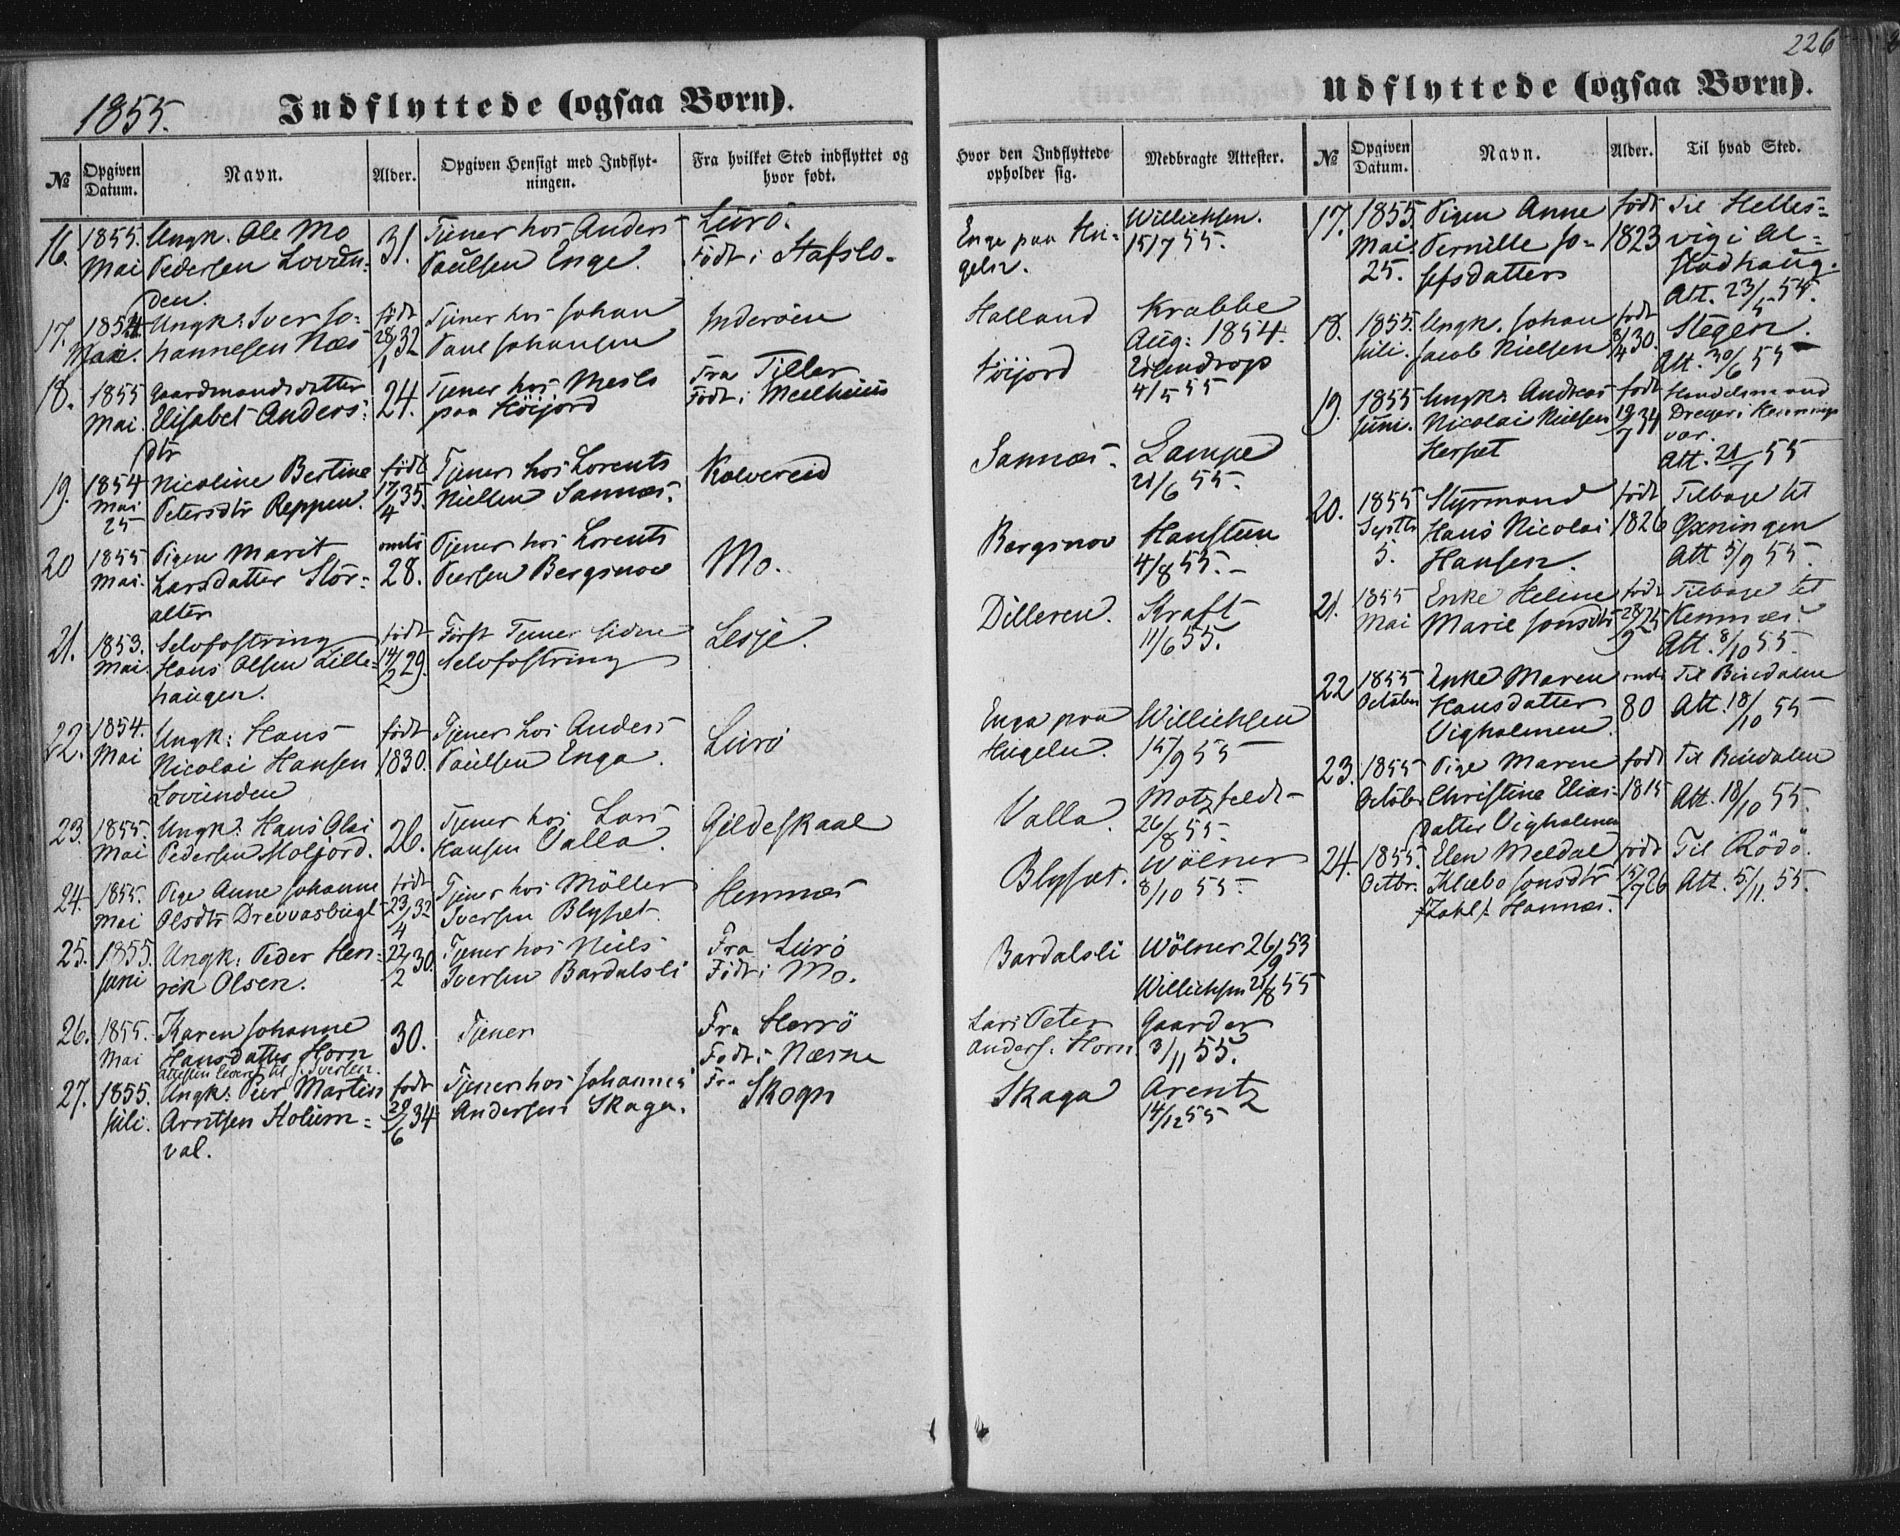 226
1855.
Indflyttede (ogsaa Børn).
№
Opgiven Datum.
Navn.
Alder.
Opgiven Hensigt med Indflyt-
ningen.
Fra hvilket Sted indflyttet og
hvor født.
Hvor den Indflyttede
opholder sig.
Medbragte Attester.
16. 1855. Ungk. Ole Mo 31. Tjener hos Anders Lurö. Enge paa Hu- Willichsen.
Mai Pedersen Lovun- Paulsen Enge. Födt i Hafslo. gelen. 15/7 55.
den.
17. 1854 Ungk: Iver Jo- födt Tjener hos Johan Inderöen Halland Krabbe
Mai. hannesen Næs 28/1 32 Paul Johansen Aug: 1854.
18. 1855 Gaardmandsdatter 24. Tjener hos Fra Tiller Höijord
Mai. Elisabet Anders: paa Höijord Födt i Meelhuus 4/5 55
dtr
19. 1854 Nicoline Bertine födt Tjener hos Lorents Kolvereid Sannæs. Lampe
Mai Petersdtr Reppen. 17/4 35. Nielsen Sannæs. 21/6 55.
25
20 1855 Pigen Marit omtr Tjener hos Lorents Mo. Bergsnov Hansteen
Mai. Larsdatter Stor- 28. Peersen Bergsnov 4/8 55.
alter
21. 1853. Selvfostring födt Först Tjener siden Lesje. Dilleren. Kraft
Mai Hans Olsen Lille- 14/2 29. Selvfostring 11/6 55.
haugen.
22. 1854. Ungk: Hans födt Tjener hos Anders Lurö Enga paa Willichsen
Mai Nicolai Hansen 1830. Paulsen Enga. Hugelen. 15/9 55
Lovunden
23 1855. Ungk: Hans Olai 26. Tjener hos Lars Gildeskaal Valla. Motzfeldt
Mai Pedersen Molfjord. Hansen Valla. 26/8 55.
24. 1855. Pige Anne Johanne födt Tjener hos Möller Hemnæs Blyset. Wölner
Mai Olsdtr Drevvasbugt 23/4 32 Iversen Blyset. 8/10 55.
25. 1855. Ungk: Peder Hen- 22/2 30. Tjener hos Niels Fra Lurö Bardalsli Wölner 26/9 53
Juni rik Olsen. Iversen Bardalsli Födt i Mo. Willichsen 21/8 55
26. 1855. Karen Johanne 30. Tjener Fra Herrö Lars Peter Gaarder
Mai Hansdatter Horn Födt i Næsne Anders: Horn. 3/11 55.
Attesten leveret til J. Iversen.
27. 1855. Ungk: Peer Martin födt Tjener hos Johannes Fra Skogn Skaga Arentz
Juli. Arntsen Holum- 20/6 34 Andersen Skaga. 14/12 55
val.
Udflyttede (ogsaa Børn).
№
Opgiven Datum.
Navn.
Alder.
Til hvad Sted.
17. 1855 Pigen Anne födt Til Helles-
Mai. Pernille Jo- 1823 vig i Al-
25. sefsdatter stadhaug.
Att. 23/5 55.
18. 1855. Ungk. Johan födt Stegen.
Juli. Jacob Nielsen 8/4 30. Att. 30/6 55
19. 1855 Ungk: Andreas födt Handelsmand
Juni. Nicolai Nielsen 19/7 34 Dreyer i Hennings
Herset vær.
Att. 21/7 55
20. 1855 Styrmand födt Tilbage til
Septbr Hans Nicolai 1826 Öxningen
5. Hansen. Att 5/9 55.
21. 1855 Enke Heline födt Tilbage til
Mai Marie Jonsdtr 28/9 25 Hemnæs.
Att. 8/10 55.
22 1855 Enke Maren omtr Til Bindalen
October Hansdatter 80 Att. 18/10 55
Vigholmen.
23. 1855 Pige Maren födt Til Bindalen
October Christine Elias- 1815 Att. 18/10 55.
datter Vigholmen
24. 1855. Elen Meldal födt Til Rödö.
Octbr. Klæbo Jonsdtr 15/7 26 Att. 5/11 55.
Zahl f. Hannæs.